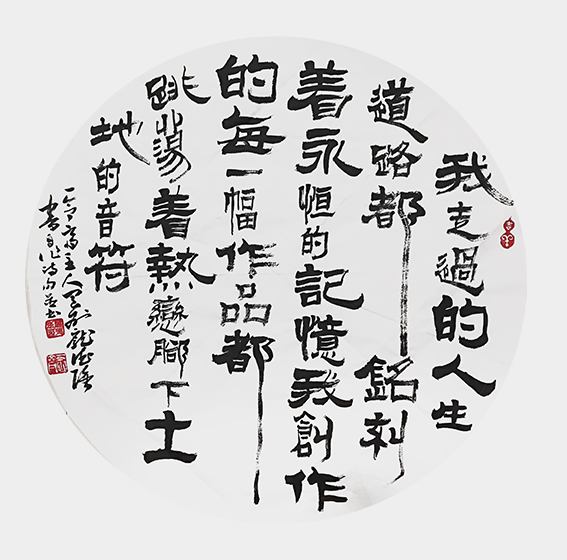 我走過的人生
道路都銘刻
着永恒的記憶我創作
的每一幅作品都
跳蕩着熱戀腳下土
地的音符
齋主人
書自作诗